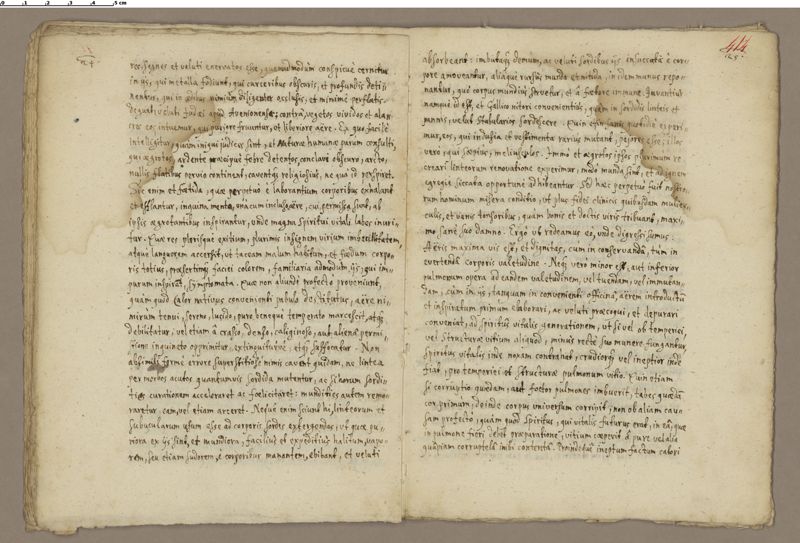 res, segnes et veluti enervatos esse, quemadmodum conspicue cernitur
in ijs, qui metalla fodiunt, qui carceribus obscuris, et profundis deti-
nentur, qui in ædibus nimium diligenter esclusis, et minime perflatis
degunt veluti Iudæi apud Avenionenses; contra vegetos vividos et alan-
cres eos intuemur, qui puriore fruuntur, et liberiore aëre. Ex quo facile
intelligitur, quam iniqui iudices sint, et Naturæ humanæ parum consulti,
qui ægrotos, ardente præcipue febre detentos, conclavi obscuro, arcto,
nullis flatibus pervio continent, caventque religiosius, ne qua id perspiret.
Sic enim et fœtida, quæ perpetuo e laborantium corporibus exhalant
et efflantur, inquinamenta, una cum incluso aëre, cui permissa sunt, ab
ipsis ægrotantibus inspirantur, unde magna Spiritui vitali labes inuri-
tur. Quæ res plerisque exitium, plurimis insignem virium imbecillitatem,
atque languorem accersit, ut taceam malum habitum, et fœdum corpo-
ris totius, præsertimque faciei colorem, familiaria admodum ijs, qui im-
purum inspirant, symptomata. Quæ non aliunde profecto proveniunt,
quam quod Calor nativus convenienti pabulo destitutus, aëre ni-
mirum tenui, sereno, lucido, pure beneque temperato marcescit, atque
debilitatur, vel etiam a crasso, denso, caliginoso, aut aliena permi-
stione inquinato opprimitur, extinguiturve, et suffocatur. Non
absimili ferme errore superstitiose nimis cavent quidam, ne lintea
per morbos acutos quantumvis sordida mutentur, ac si horum sordi-
ties curationem acceleraret ac fœlicitaret: mundities autem remo-
raretur, eam, vel etiam arceret. Neque enim sciunt hi, linteorum et
subucularum usum esse ad corporis sordes extergendas, ut quæ pu-
riora ex ijs sint, et mundiora, facilius et expeditius halitum, vapo-
rem, seu etiam sudorem, e corporibus manantem, ebibant, et veluti
414
125
absorbeant: imbutaque demum, ac veluti sordibus ijs insuccata e cor-
pore amoveantur, aliaque rursus munda et nitida, in idem munus repo-
nantur, quo corpus mundius servetur, et a fœtore immune. Iuventius
namque id est, et Gallico nitori convenientius, quam in sordidis linteis et
pannis, velut Stabularios sordescere. Quin etiam sanis quotidie experi-
mur, eos, qui indusia et vestimenta rarius mutant, pejores esse; illos
vero, qui sæpius, meliusculos. Immo et ægrotos ipsos plurimum re-
creari linteorum renovatione experimur, modo munda sint, et ad ignem
egregie siccata opportune adhibeantur. Sed hæc perpetuo fuit nostro-
rum hominum misera conditio, ut plus fidei clinicis quibusdam mulier-
culis, et vanis tonsoribus, quam bonis et doctis viris tribuant, maxi-
mo sane suo damno. Ergo ut redeamus eo, unde digressi sumus:
Aëris maxima vis est, et dignitas, cum in conservanda, tum in
evertenda corporis valetudine. Neque vero minor est, aut inferior
pulmonum opera ad eandem valetudinem, vel tuendam, vel immutan-
dam, cum in ijs, tanquam in convenienti officina, aërem introductum
et inspiratum primum elaborari, ac veluti præcoqui, et depurari
conveniat, ad Spiritus vitalis generationem, ut si vel ob temperiei,
vel structuræ vitium aliquod, minus recte suo munere fungantur
Spiritus vitalis sive noxam contrahat, crudiorque vel ineptior inde
fiat, pro temperiei et structuræ pulmonum vitio. Quin etiam
si corruptio quædam, aut fœtor pulmones imbuerit, tabes quædam
cor primum, deinde corpus universum corripit, non ob aliam cau-
sam profecto, quam quod Spiritus, qui vitalis futurus erat, in ea, quæ
in pulmone fieri debet præparatione, vitium cœperit a pure vel alia
quapiam corruptela imbi contenta. Proindeque ineptum factum calori